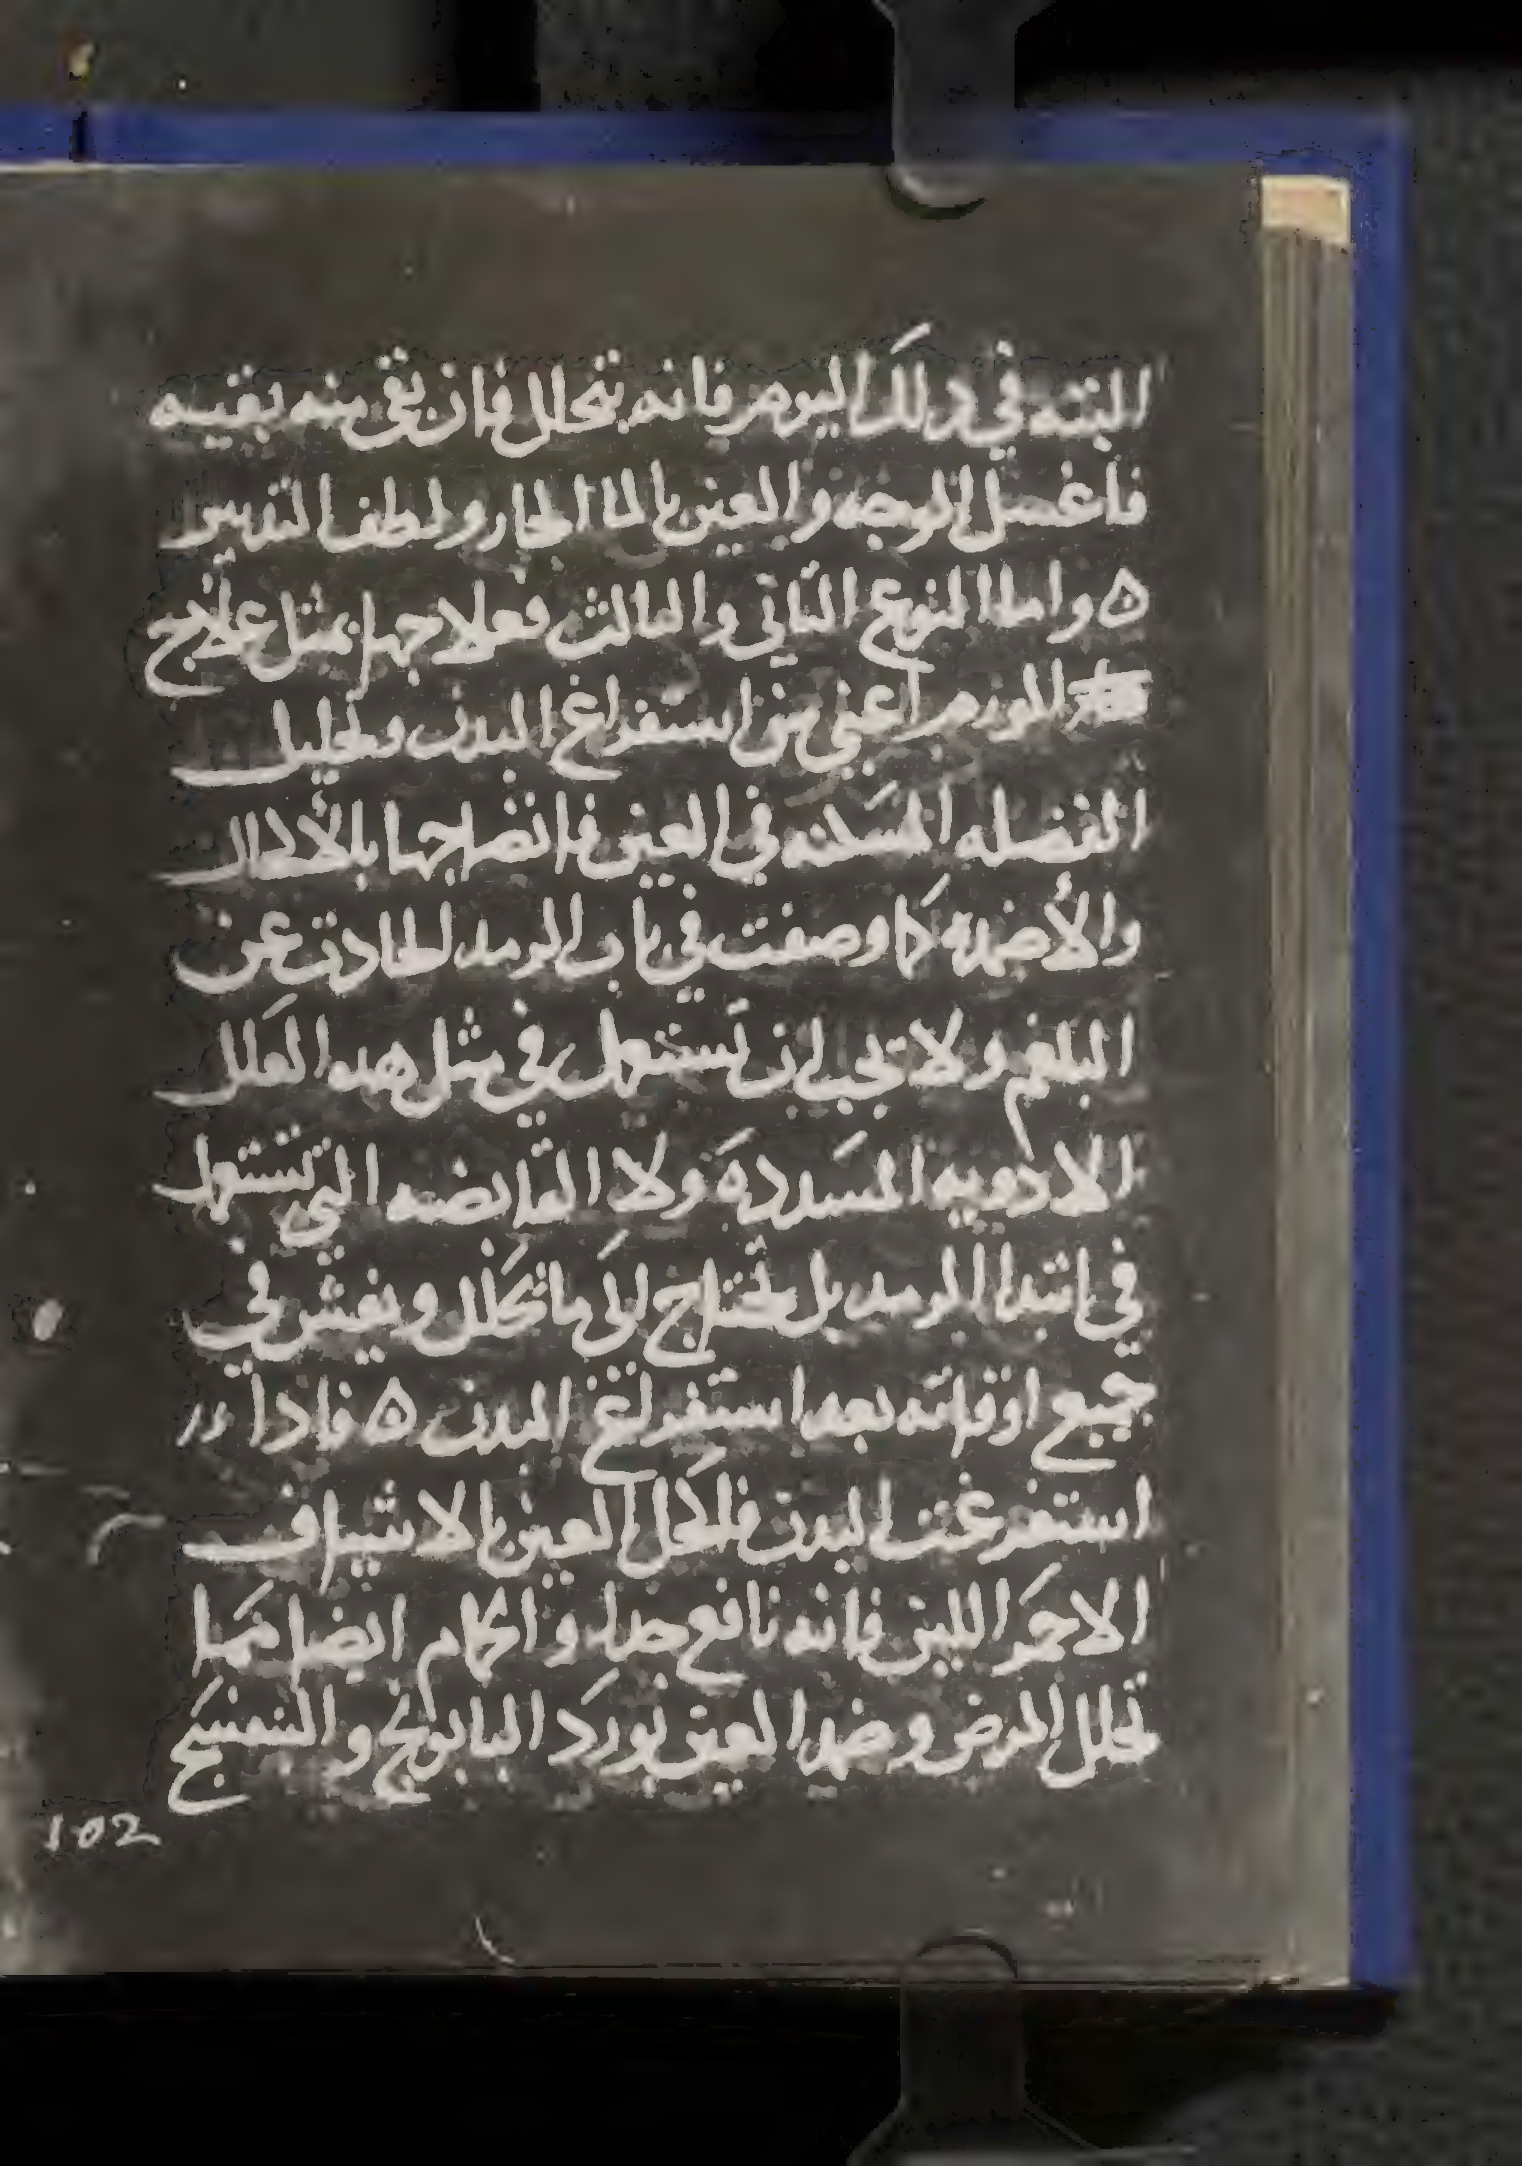 البته في ذلك اليوم فانه يتحلل فان بقي منه بقيه
فاغسل الوجه والعين بالما الحار ولطف التدبير
ه واما النوع الثاني والثالث فعلاجها بمثل علاج
الورم اعني من استفراغ البدن وتحليل
الفضله المستكنه في العين فانضاجها بالأكحال
والأضمدة كما وصفت في باب الرمد الحادث عن
البلغم ولا يجب ان تستعمل في مثل هذه العلل
الادويه المسددة ولا القابضه التي تستعمل
في ابتدا الرمد بل تحتاج الى ما يحلل ويفش في
جميع اوقاته بعد استفراغ البدن ه فاذا
استفرغت البدن فاكحل العين بالاشياف
الاحمر اللين فانه نافع جدا والحمام ايضا مما
يحلل المرض وضمد العين بورد البابونج والبنفسج
102